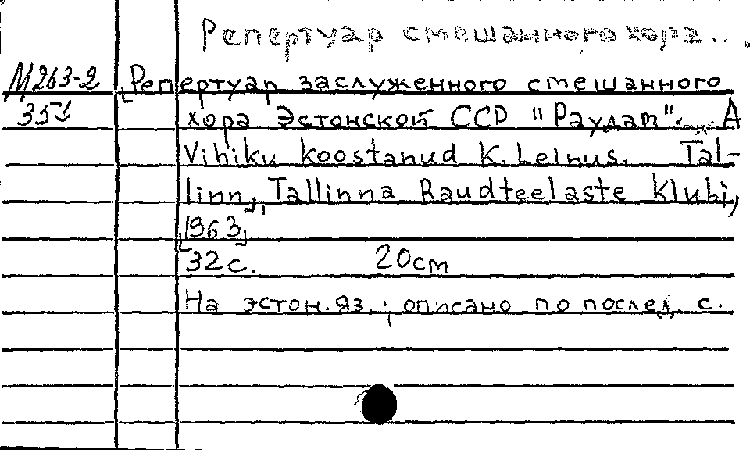 Репертуар смешанного хора...
М263-2 [Репертуар заслуженного смешанного
хора Эстонской ССР "Раудам". А
Vihiku koostanud K. Leinus. Tal-
linn, Tallinna Raudteelaste Klubi,
[1963]
32 с. 20cm
На эстон. яз.; описано по послед. с.